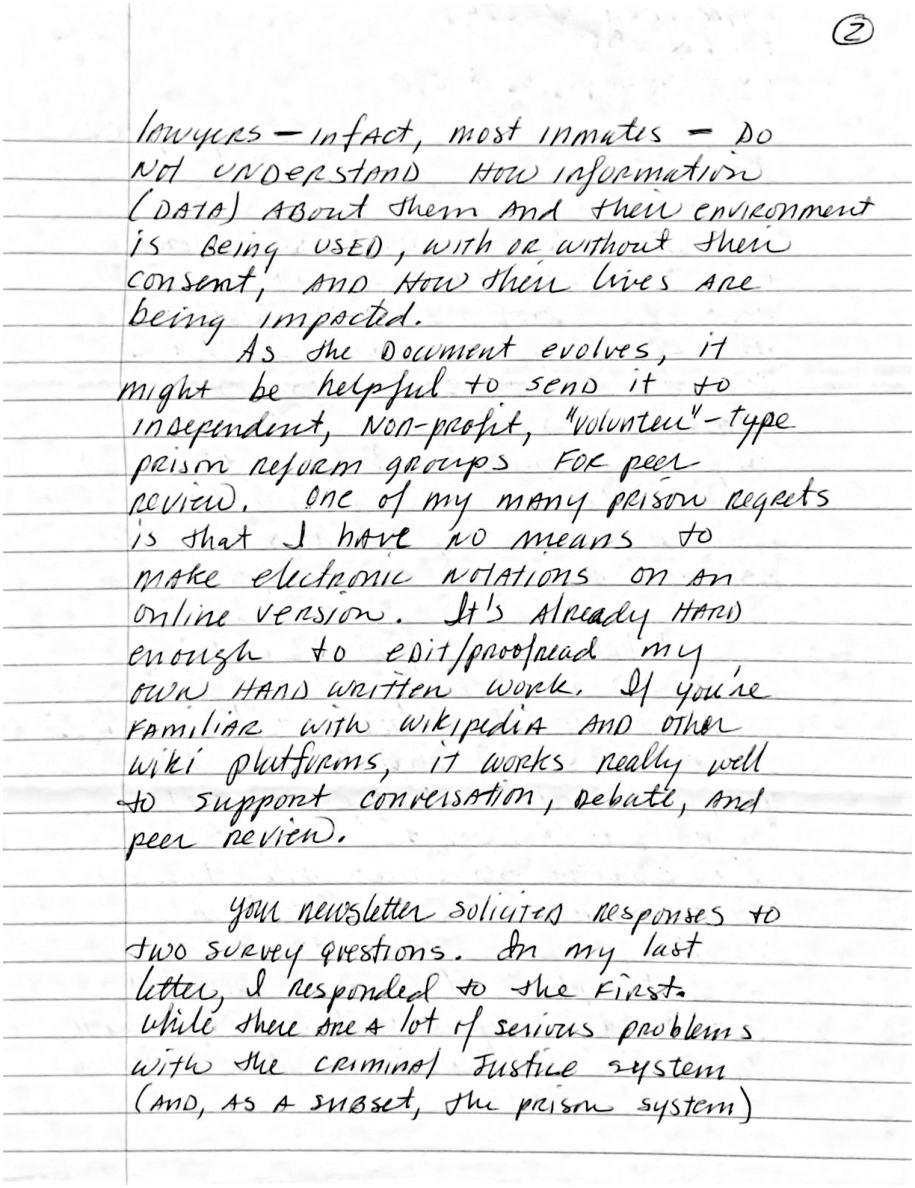 2
lawyers – infact, most inmates – Do
Not UNDERSTAND How information
(DATA) ABout them And their environment
is Being USED, with or without their
consent, AND How their lives Are
being impacted.
As the Document evolves, it
might be helpful to send it to
independent, Non-profit, "volunteer"-type
prison reform groups For peer
review. One of my many prison regrets
is that I have no means to
make electronic notations on an
online version. It's Already HARD
enough to edit/proofread my
own HAND written work. If you're
FAMILIAR with wikipedia AND other
wiki platforms, it works really well
to support conversation, Debate, And
peer review.
Your newsletter solicited responses to
two survey questions. In my last
letter, I responded to the First.
While there Are A lot of serious problems
with the criminal Justice system
(AND, AS A SUBSET, the prison system)